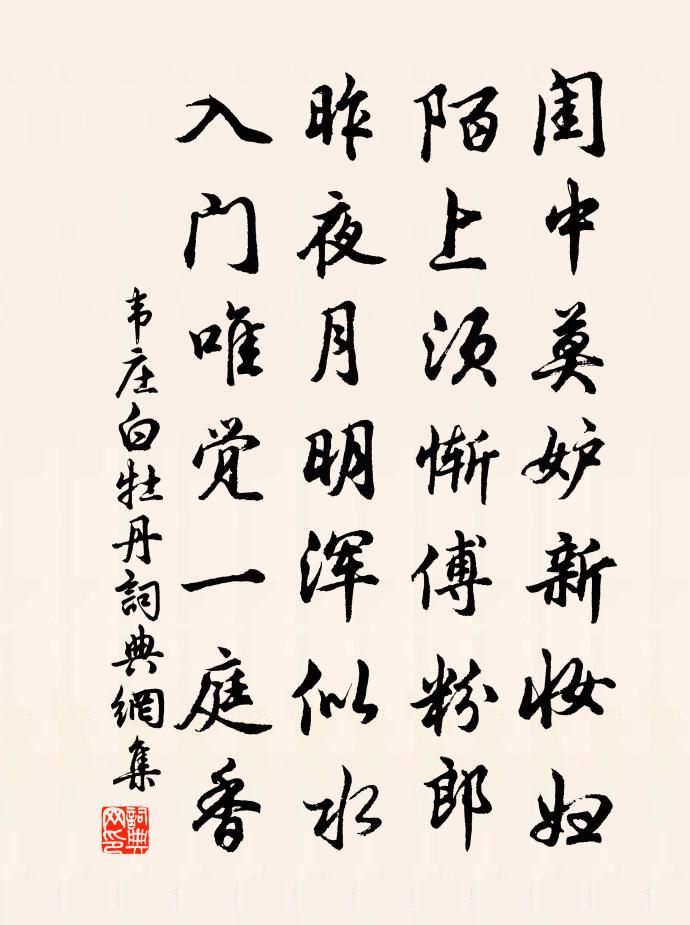 闺中莫妒新妆妇
陌上须惭傅粉郎
昨夜月明浑似水
入门唯觉一庭香
韦庄白牡丹詞典網集
詞典
网印